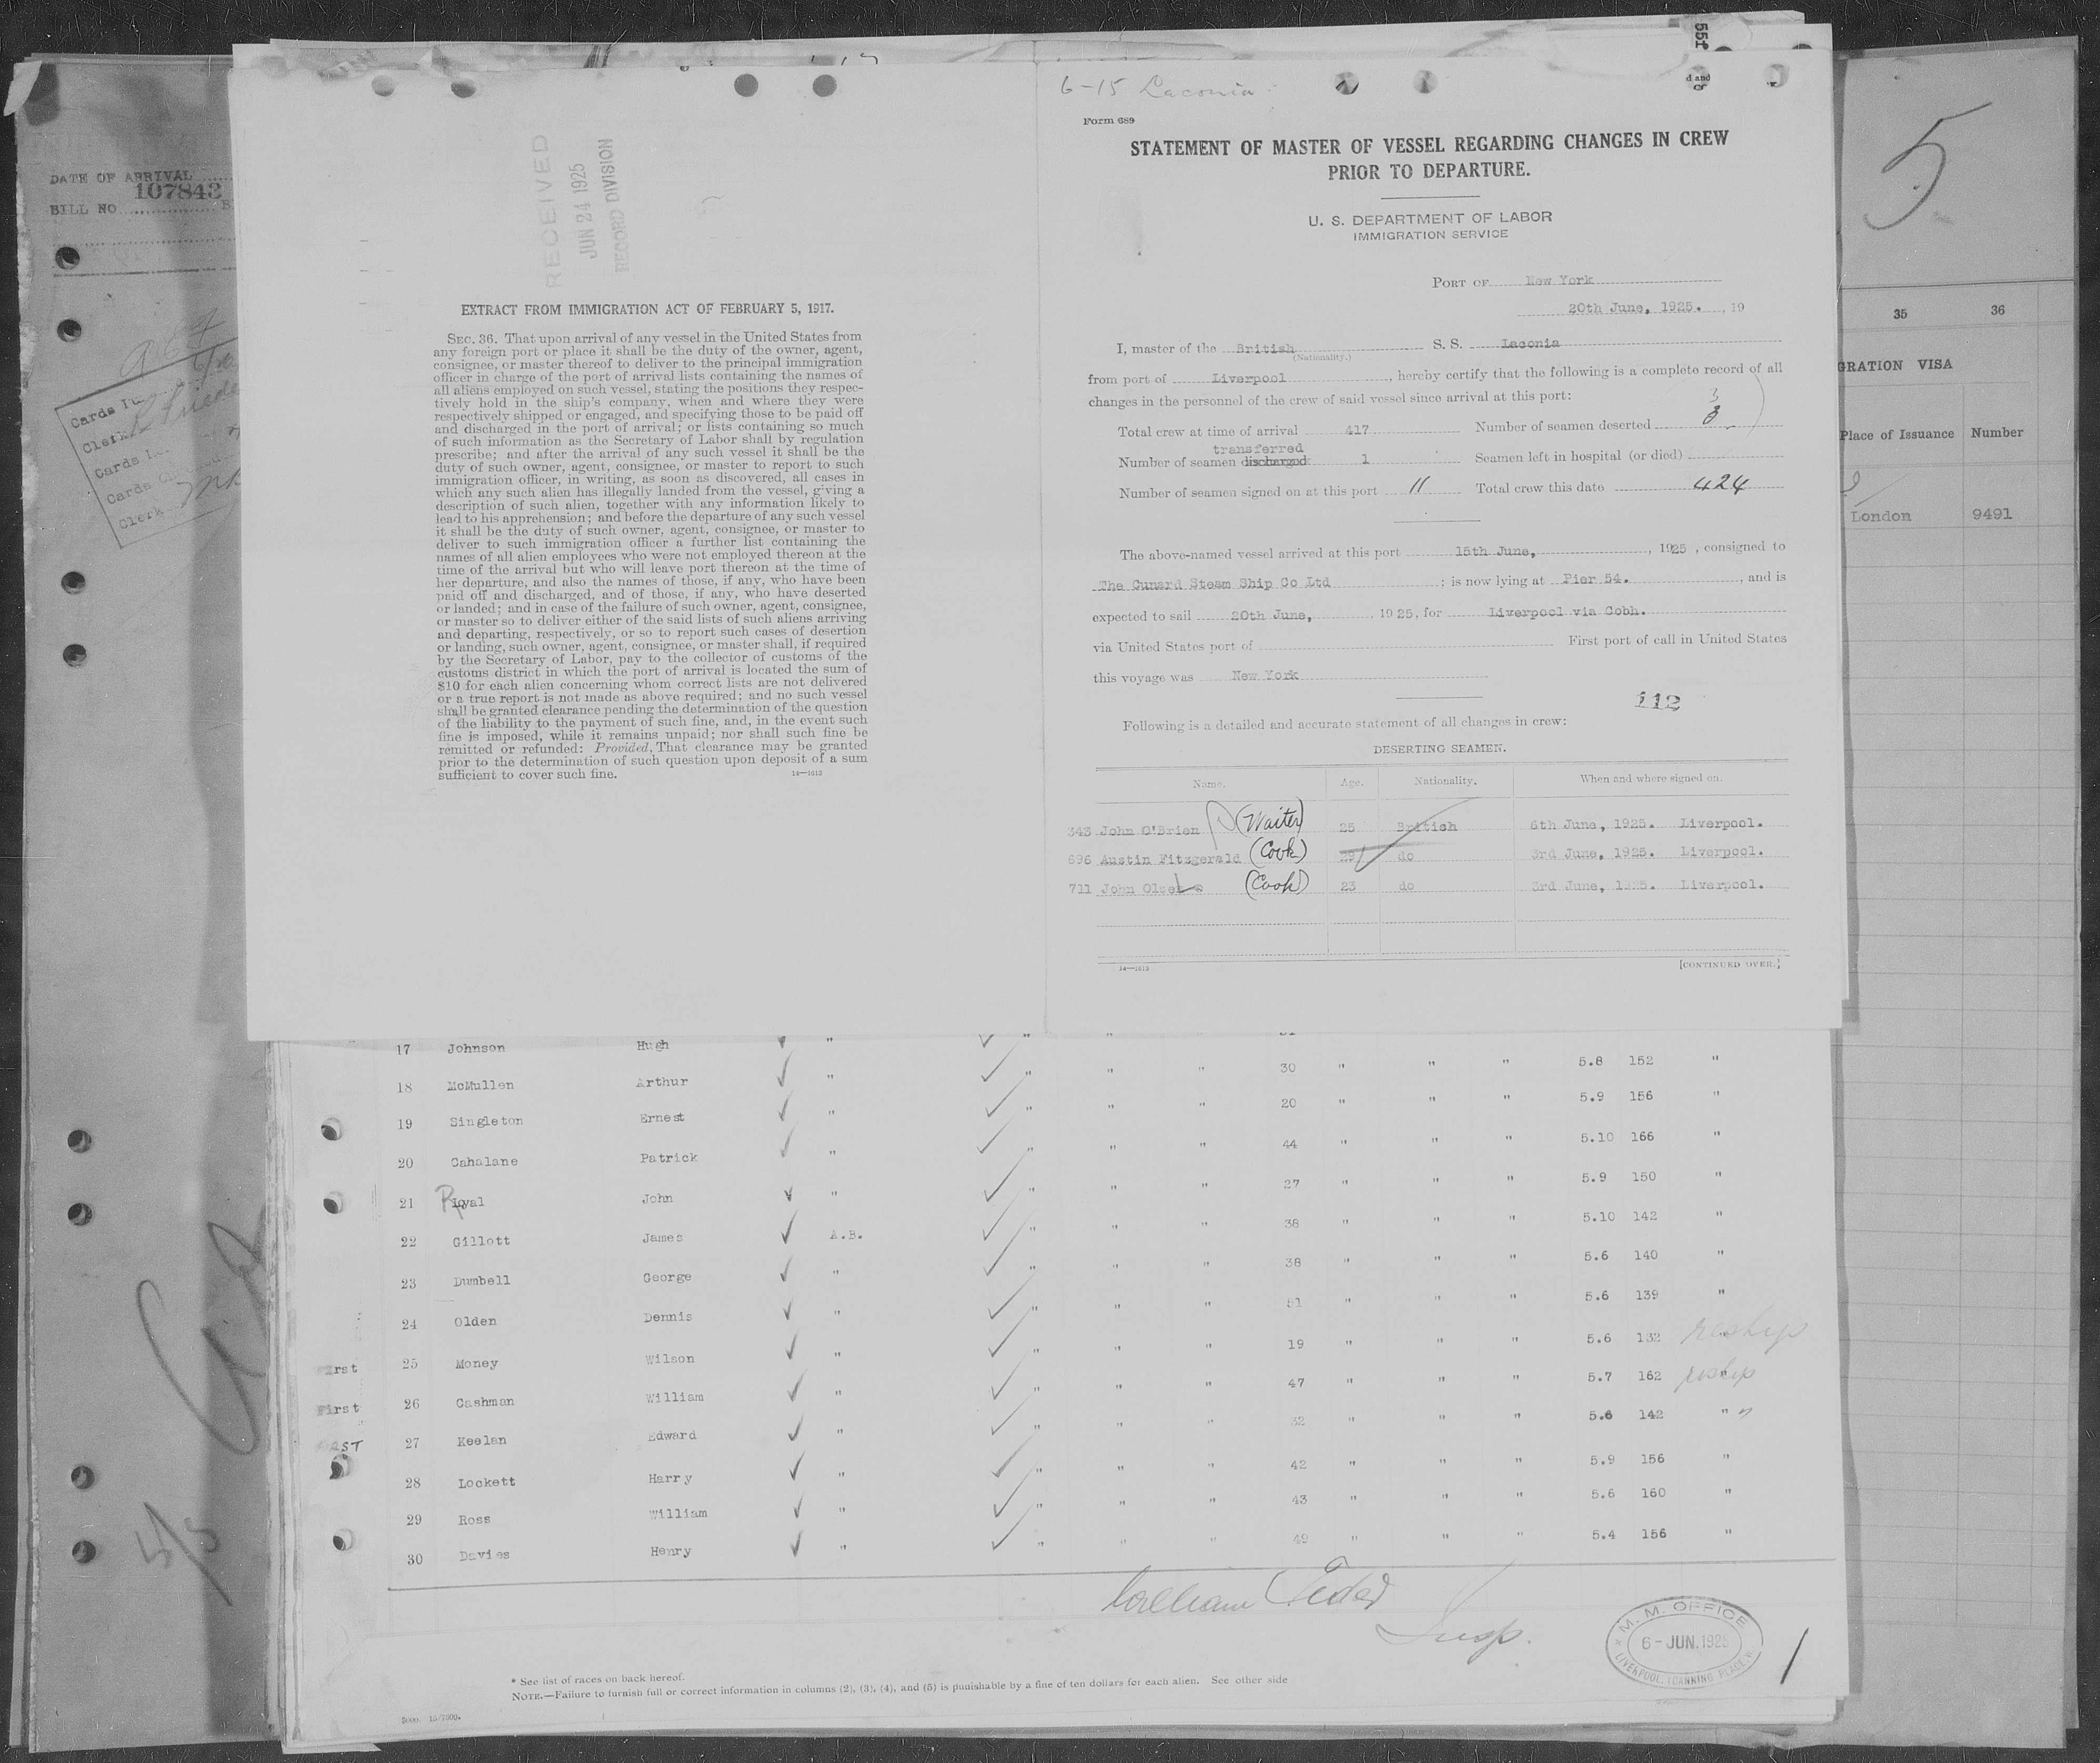 DATE OF ARRIVAL
107843
BILL NO
Cards I
Clerk
Cards I
Cards
Clerk
RECEIVED
JUN 24 1925
RECORD DIVISION
EXTRACT FROM IMMIGRATION ACT OF FEBRUARY 5, 1917.
SEC. 36. That upon arrival of any vessel in the United States from
any foreign port or place it shall be the duty of the owner, agent,
consignee, or master thereof to deliver to the principal immigration
officer in charge of the port of arrival lists containing the names of
all aliens employed on such vessel, stating the positions they respec-
tively hold in the ship's company, when and where they were
respectively shipped or engaged, and specifying those to be paid off
and discharged in the port of arrival; or lists containing so much
of such information as the Secretary of Labor shall by regulation
prescribe; and after the arrival of any such vessel it shall be the
duty of such owner, agent, consignee, or master to report to such
immigration officer, in writing, as soon as discovered, all cases in
which any such alien has illegally landed from the vessel, giving a
description of such alien, together with any information likely to
lead to his apprehension; and before the departure of any such vessel
it shall be the duty of such owner, agent, consignee, or master to
deliver to such immigration officer a further list containing the
names of all alien employees who were not employed thereon at the
time of the arrival but who will leave port thereon at the time of
her departure, and also the names of those, if any, who have been
paid off and discharged, and of those, if any, who have deserted
or landed; and in case of the failure of such owner, agent, consignee,
or master so to deliver either of the said lists of such aliens arriving
and departing, respectively, or so to report such cases of desertion
or landing, such owner, agent, consignee, or master shall, if required
by the Secretary of Labor, pay to the collector of customs of the
customs district in which the port of arrival is located the sum of
$10 for each alien concerning whom correct lists are not delivered
or a true report is not made as above required; and no such vessel
shall be granted clearance pending the determination of the question
of the liability to the payment of such fine, and, in the event such
fine is imposed, while it remains unpaid; nor shall such fine be
remitted or refunded: Provided, That clearance may be granted
prior to the determination of such question upon deposit of a sum
sufficient to cover such fine.
14—1613
551
d and
6-15 Laconia
Form 689
STATEMENT OF MASTER OF VESSEL REGARDING CHANGES IN CREW
PRIOR TO DEPARTURE.
U. S. DEPARTMENT OF LABOR
IMMIGRATION SERVICE
PORT OF New York
20th June, 1925. , 19
I, master of the British S. S. Laconia
(Nationality.)
from port of Liverpool , hereby certify that the following is a complete record of all
changes in the personnel of the crew of said vessel since arrival at this port:
3
Total crew at time of arrival 417 Number of seamen deserted
transferred
Number of seamen discharged 1 Seamen left in hospital (or died)
Number of seamen signed on at this port 11 Total crew this date 424
The above-named vessel arrived at this port 15th June, , 1925 , consigned to
The Cunard Steam Ship Co Ltd ; is now lying at Pier 54. , and is
expected to sail 20th June, , 1925, for Liverpool via Cobh.
via United States port of First port of call in United States
this voyage was New York
112
Following is a detailed and accurate statement of all changes in crew:
DESERTING SEAMEN.
Name. Age. Nationality. When and where signed on.
343 John O'Brien (Waiter) 25 British 6th June, 1925. Liverpool.
696 Austin Fitzgerald (Cook) 29 do 3rd June, 1925. Liverpool.
711 John Olsen (Cook) 23 do 3rd June, 1925. Liverpool.
14—1613 [CONTINUED OVER.]
5
35 36
GRATION VISA
Place of Issuance Number
London 9491
17 Johnson Hugh "
18 McMullen Arthur " " " " 30 " " " 5.8 152 "
19 Singleton Ernest " " " " 20 " " " 5.9 156 "
20 Cahalane Patrick " " " " 44 " " " 5.10 166 "
21 Royal John " " " " 27 " " " 5.9 150 "
22 Gillott James A.B. " " " 38 " " " 5.10 142 "
23 Dumbell George " " " " 38 " " " 5.6 140 "
24 Olden Dennis " " " " 51 " " " 5.6 139 "
First 25 Money Wilson " " " " 19 " " " 5.6 132 reship
First 26 Cashman William " " " " 47 " " " 5.7 162 reship
27 Keelan Edward " " " " 32 " " " 5.6 142 " "
28 Lockett Harry " " " " 42 " " " 5.9 156 "
29 Ross William " " " " 43 " " " 5.6 160 "
30 Davies Henry " " " " 49 " " " 5.4 156 "
William
Insp.
M. M. OFFICE
6 - JUN. 1925
LIVERPOOL, CANNING PLACE
1
* See list of races on back hereof.
NOTE.—Failure to furnish full or correct information in columns (2), (3), (4), and (5) is punishable by a fine of ten dollars for each alien. See other side